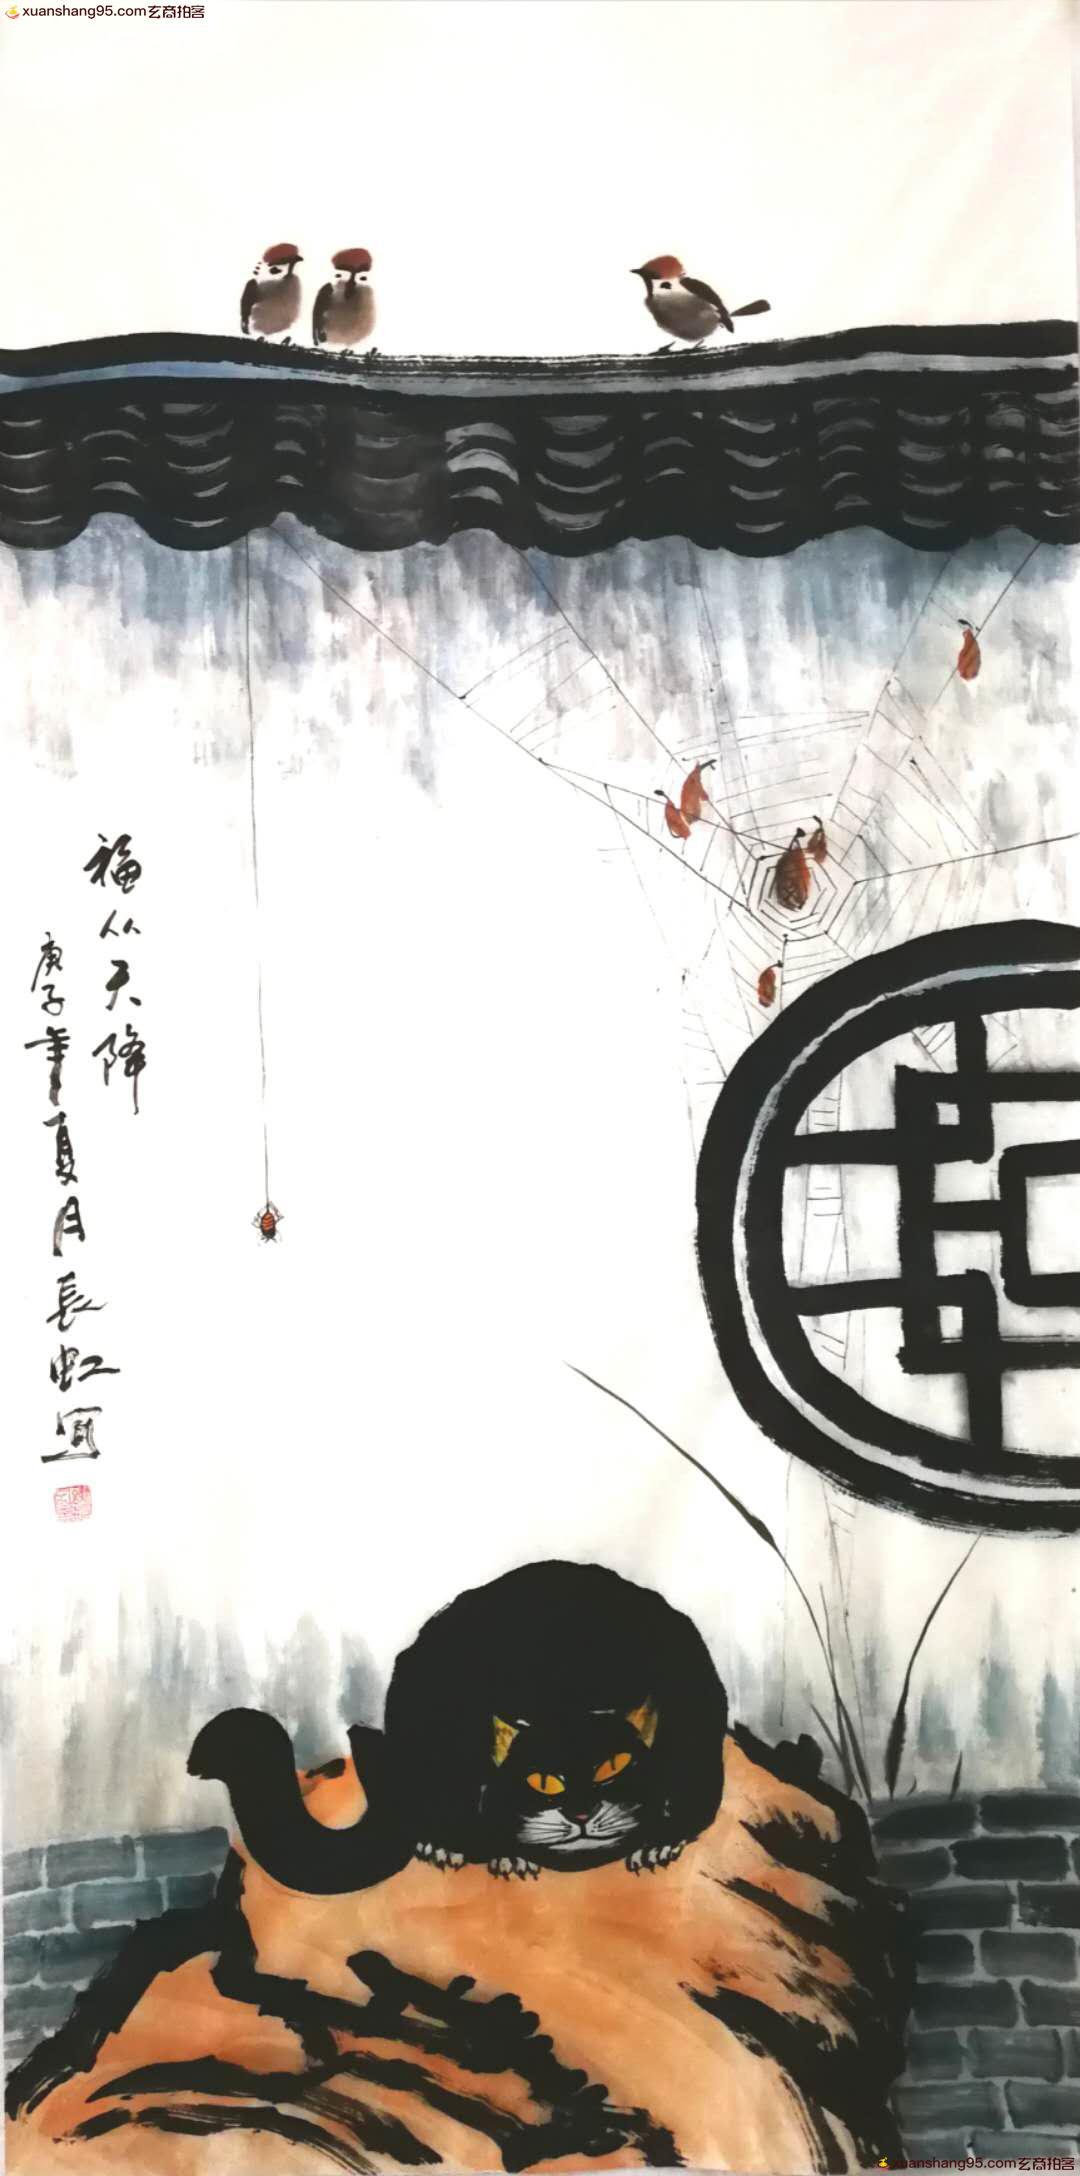 xuanshang95.com玄商拍客
福从天降
庚子年夏月長虹写
xuanshang95.com玄商拍客